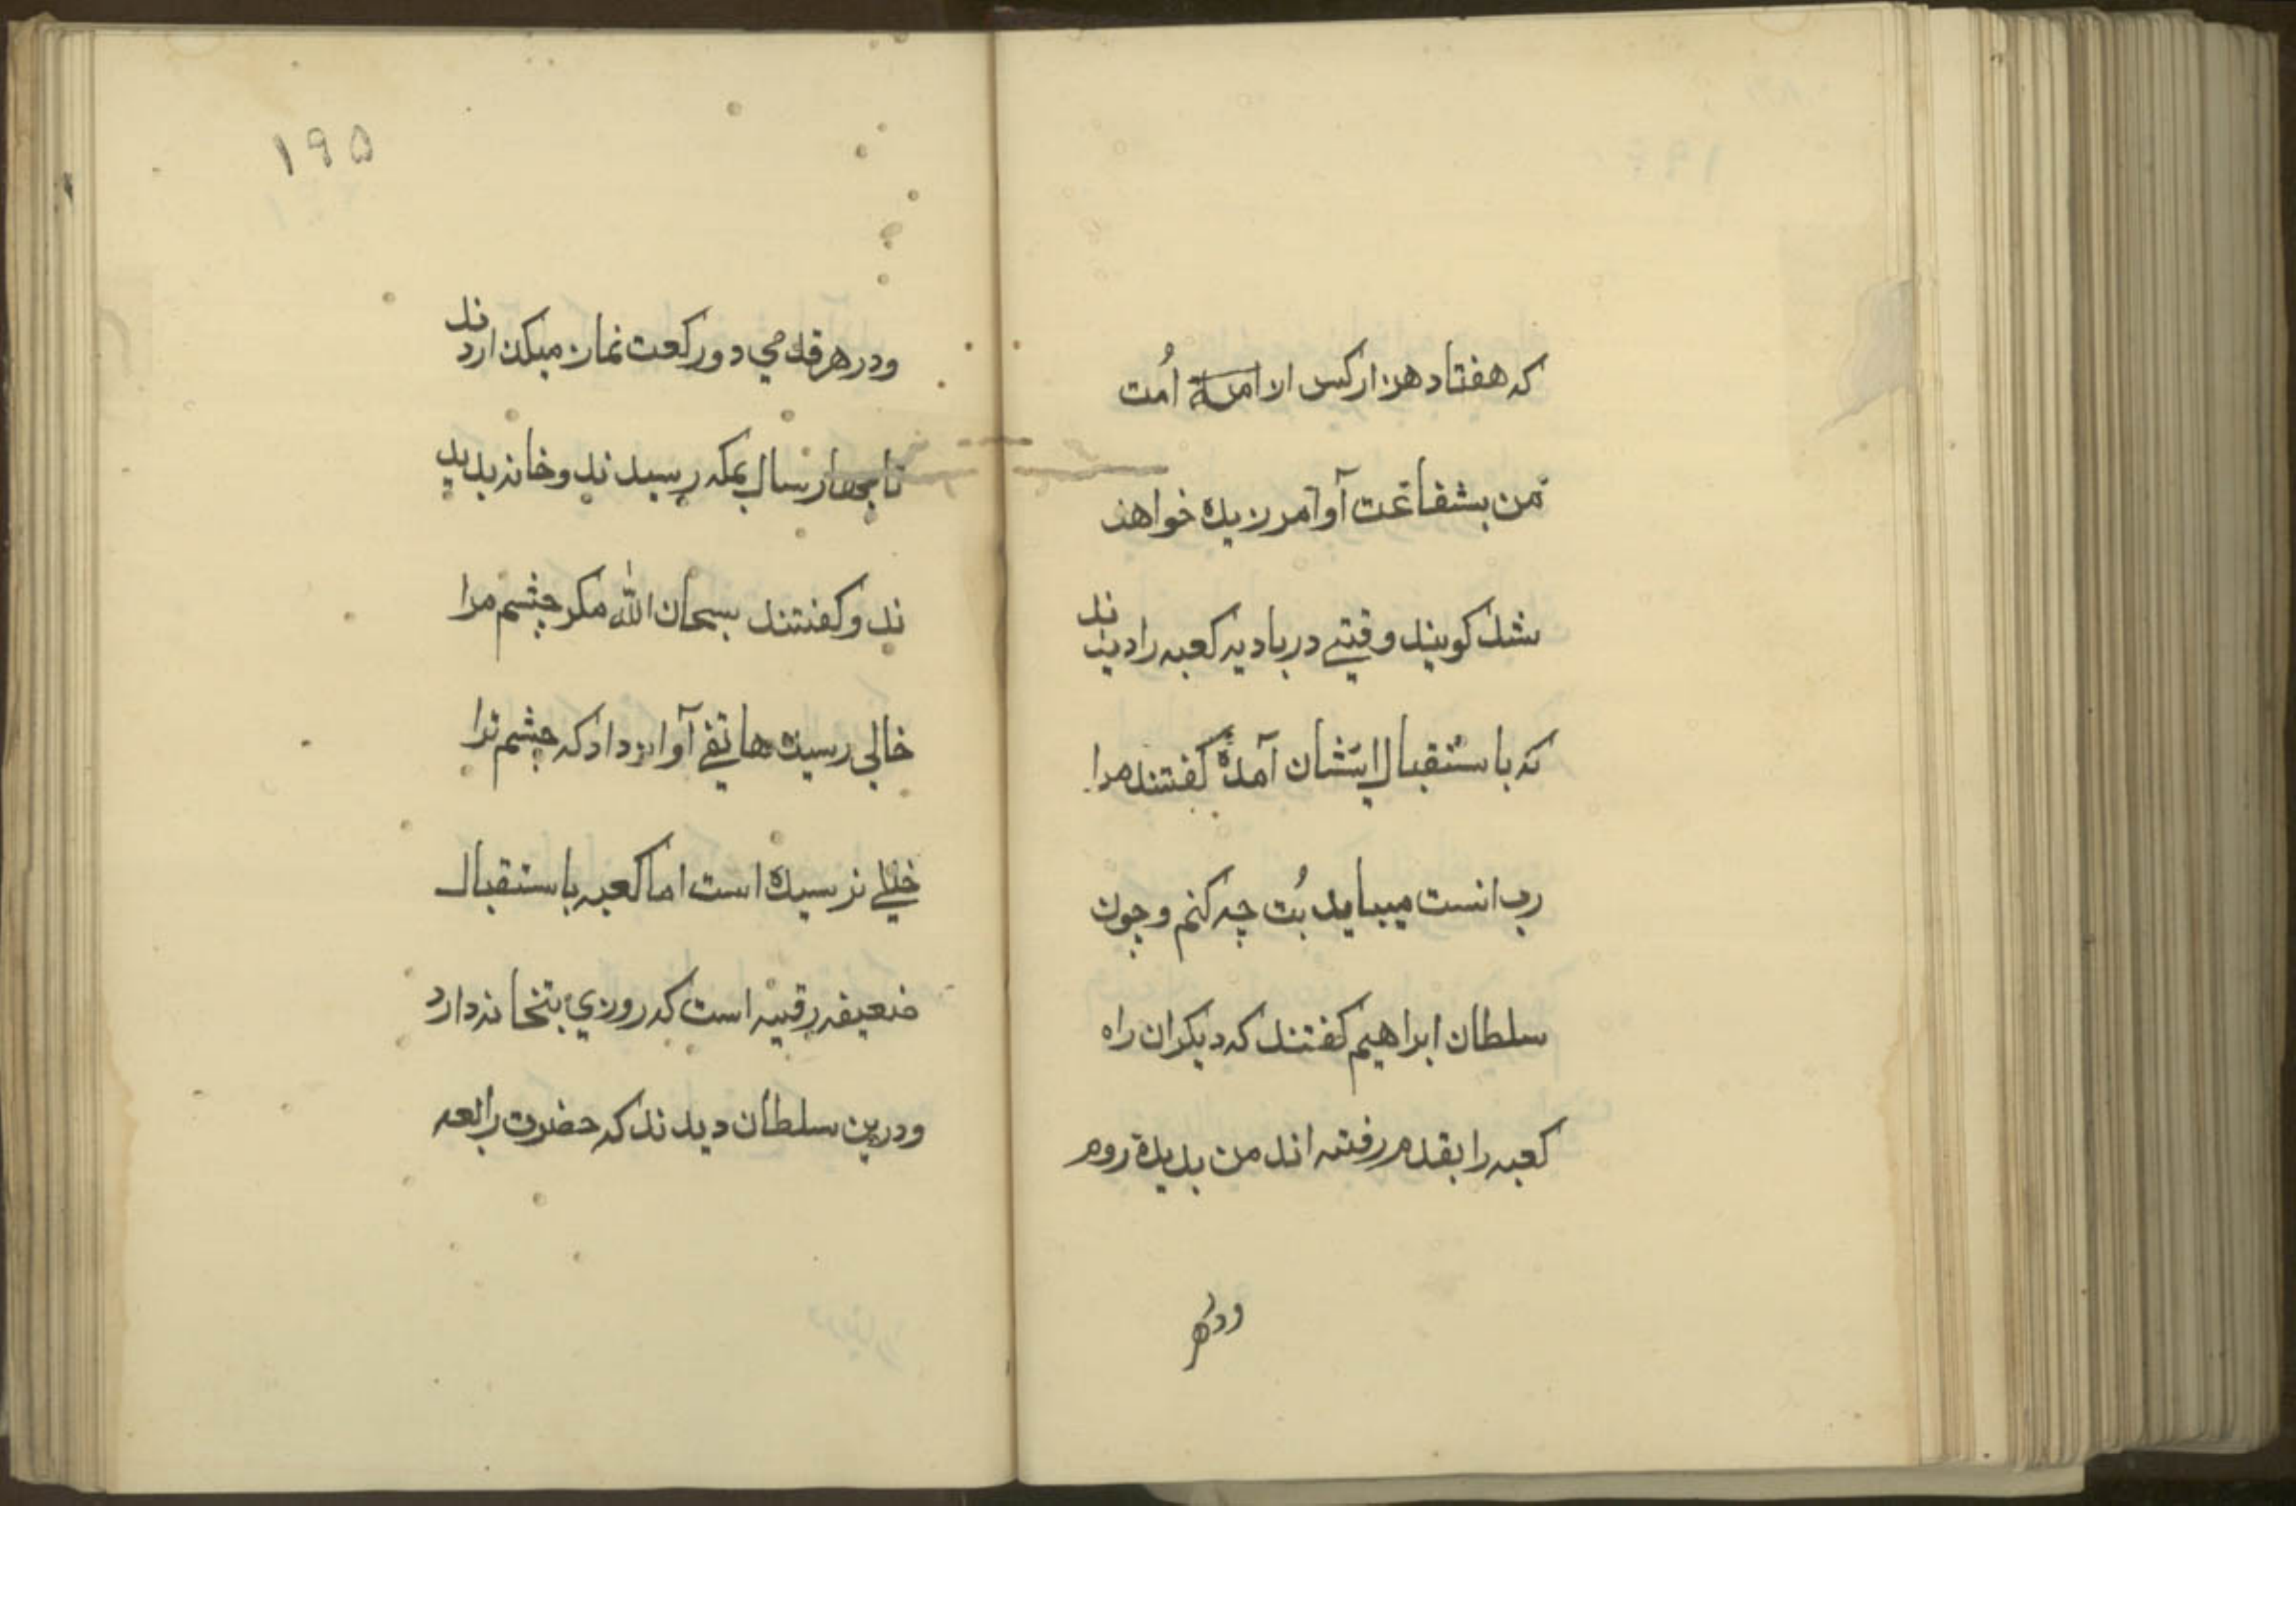 که هفتاد هزار کس از امت
من بشفاعت او آمرزیده خواهند
شد کویند وقتی در بادیه کعبه را دیدند
که باستقبال ایشان آمده کفتند مرا
رب انست میباید بُت چه کنم و چون
سلطان ابراهیم کفتند که دیکران راه
کعبه را بقدم رفته اند من بدیده روم
ودر هر
۱۹۵
ودر هر قدمی دو رکعت نماز میکذاردند
تا بچهار سال بمکه رسیدند وخانه بدید
ند و کفتند سبحان الله مکر چشم مرا
خالی رسیده هاتفی آواز داد که چشم ترا
خللی نرسیده است اما کعبه باستقبال
ضعیفه رقیه است که روزي بتخانه دارد
ودرین سلطان دیدند که حضرت رابعه